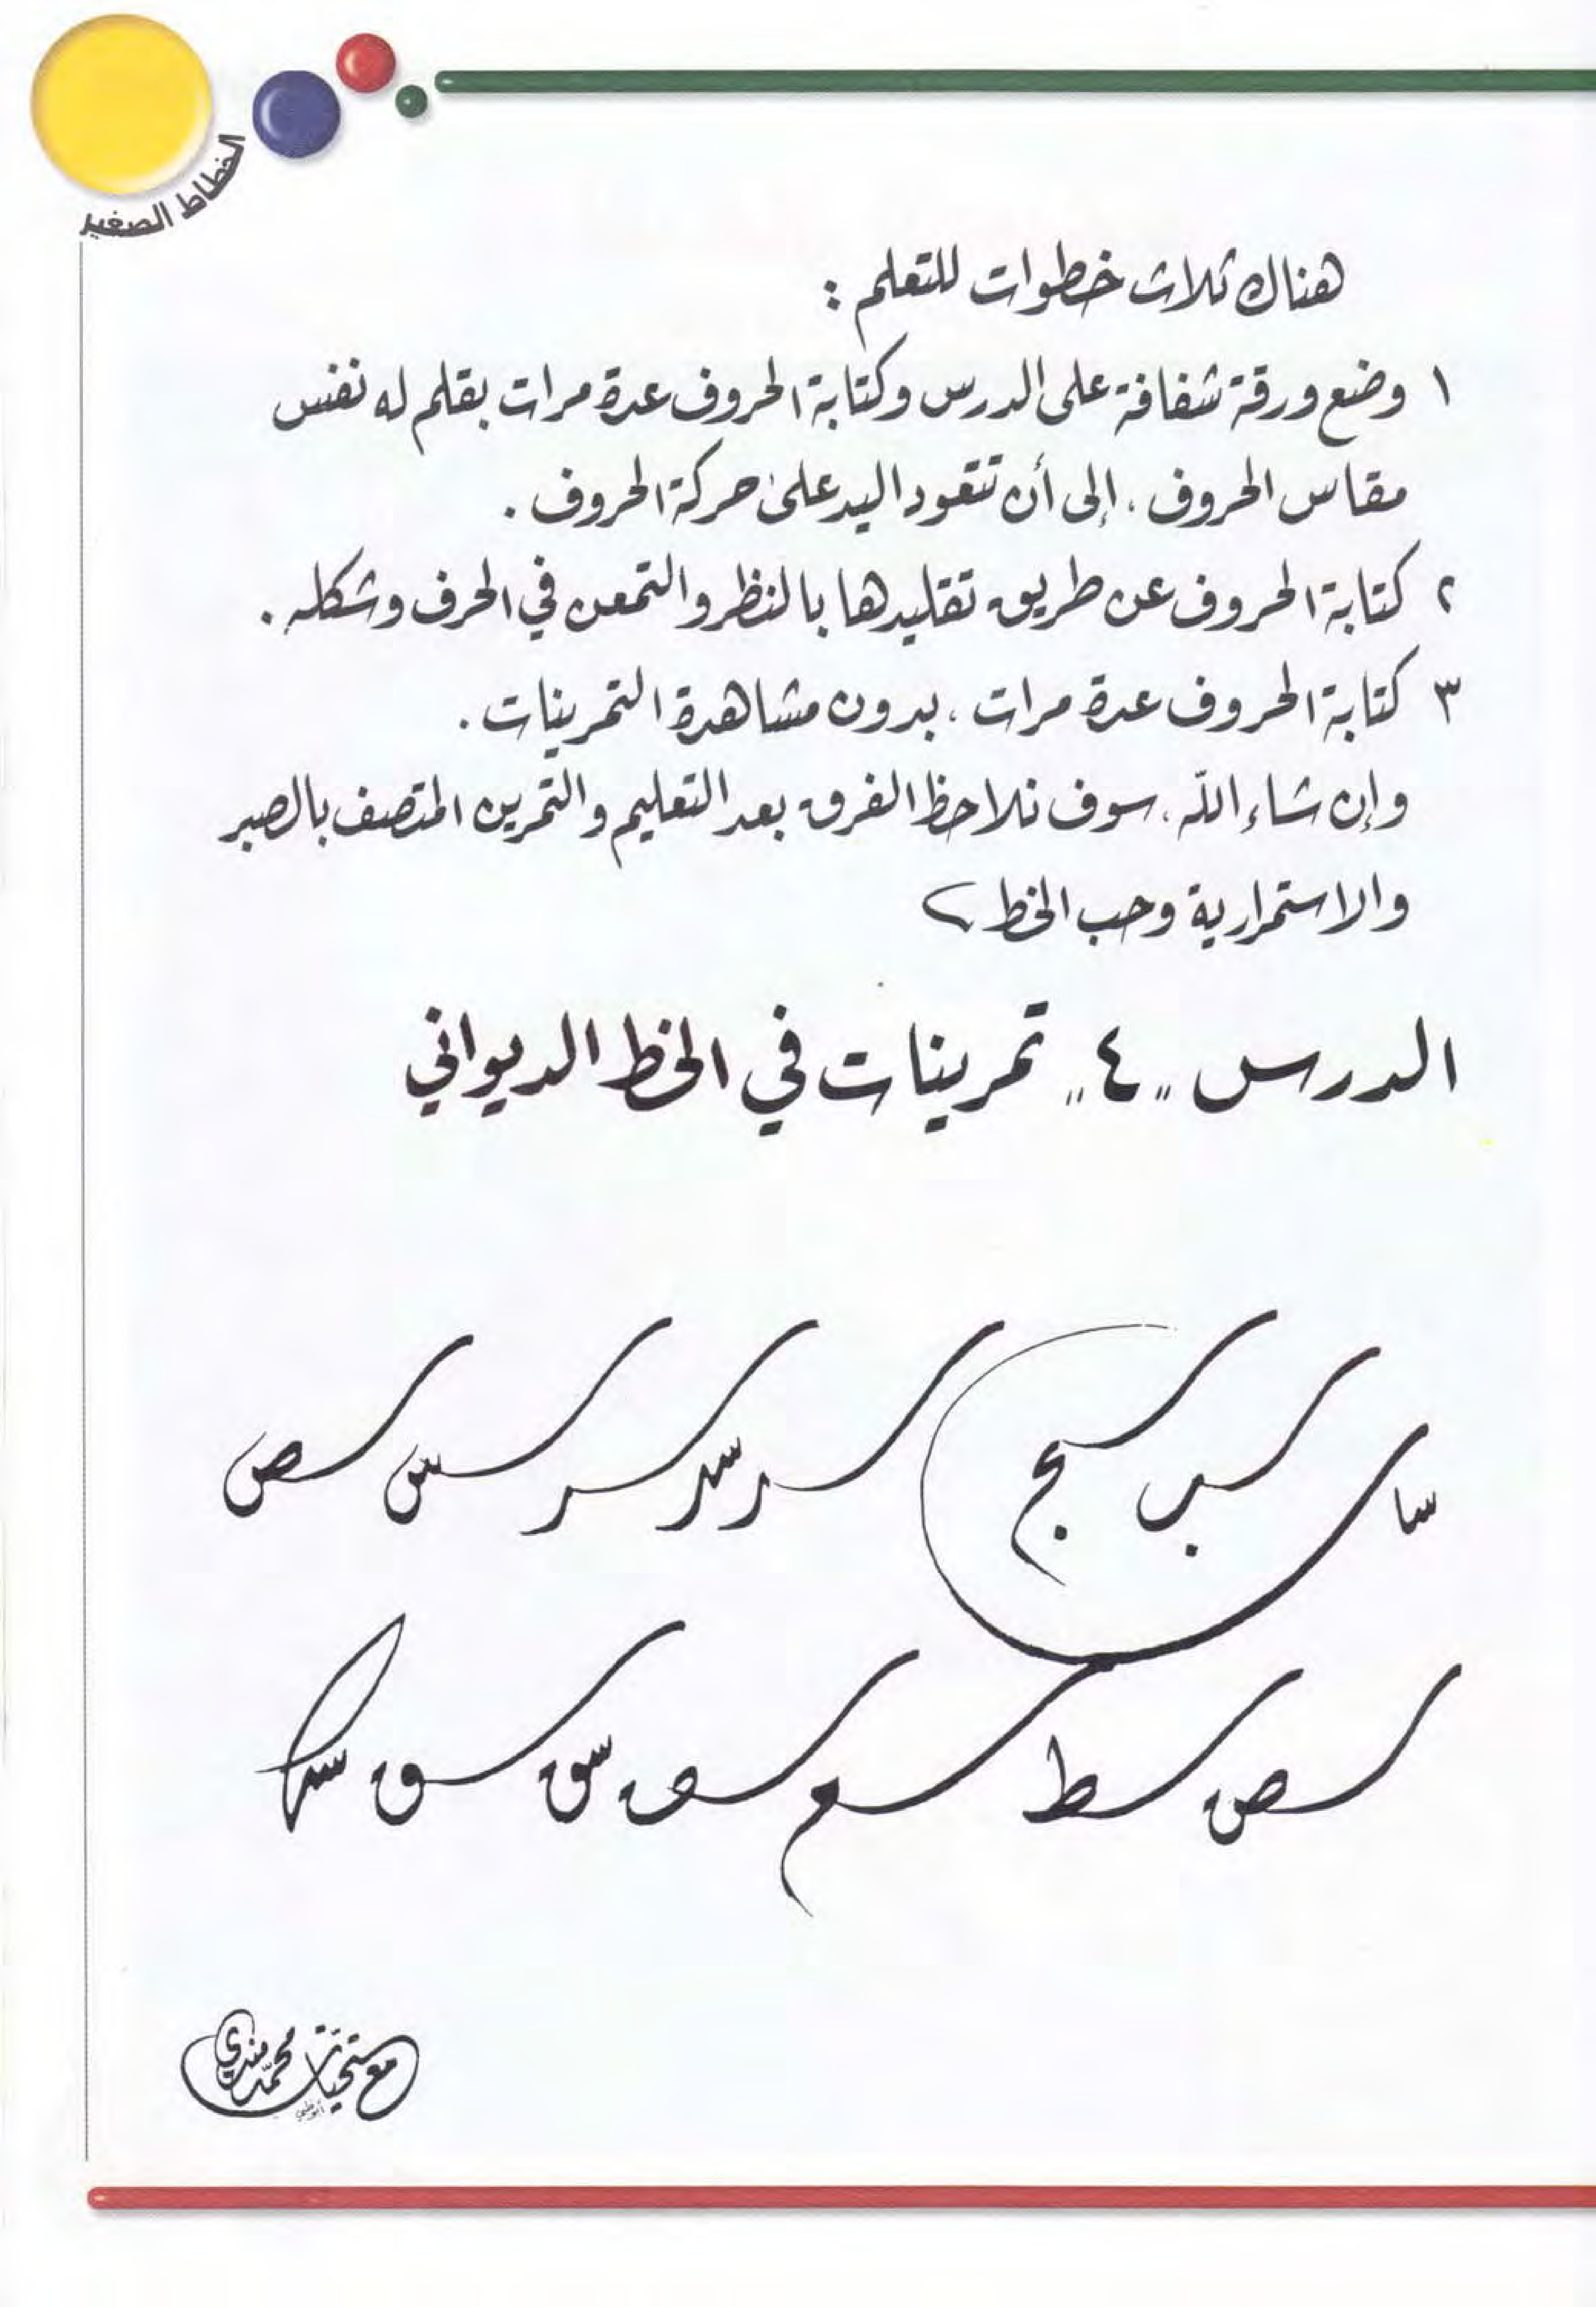 الخطاط الصغير
هناك ثلاث خطوات للتعلم :
١ وضع ورقة شفافة على الدرس وكتابة الحروف عدة مرات بقلم له نفس
مقاس الحروف ، إلى أن تتعود اليد على حركة الحروف .
٢ كتابة الحروف عن طريق تقليدها بالنظر والتمعن في الحرف وشكله .
٣ كتابة الحروف عدة مرات ، بدون مشاهدة التمرينات .
وإن شاء الله ، سوف نلاحظ الفرق بعد التعليم والتمرين المتصف بالصبر
والاستمرارية وحب الخط
الدرس "٤" تمرينات في الخط الديواني
سا سب سج سد سد سر سس سص
سص سط سع سف سق سق سك
مع تحيات محمد مندي
أبوظبي